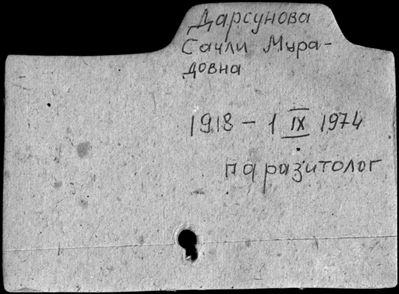 Дарсунова
Сачли Мура-
довна
1918 – 1 IX 1974
паразитолог